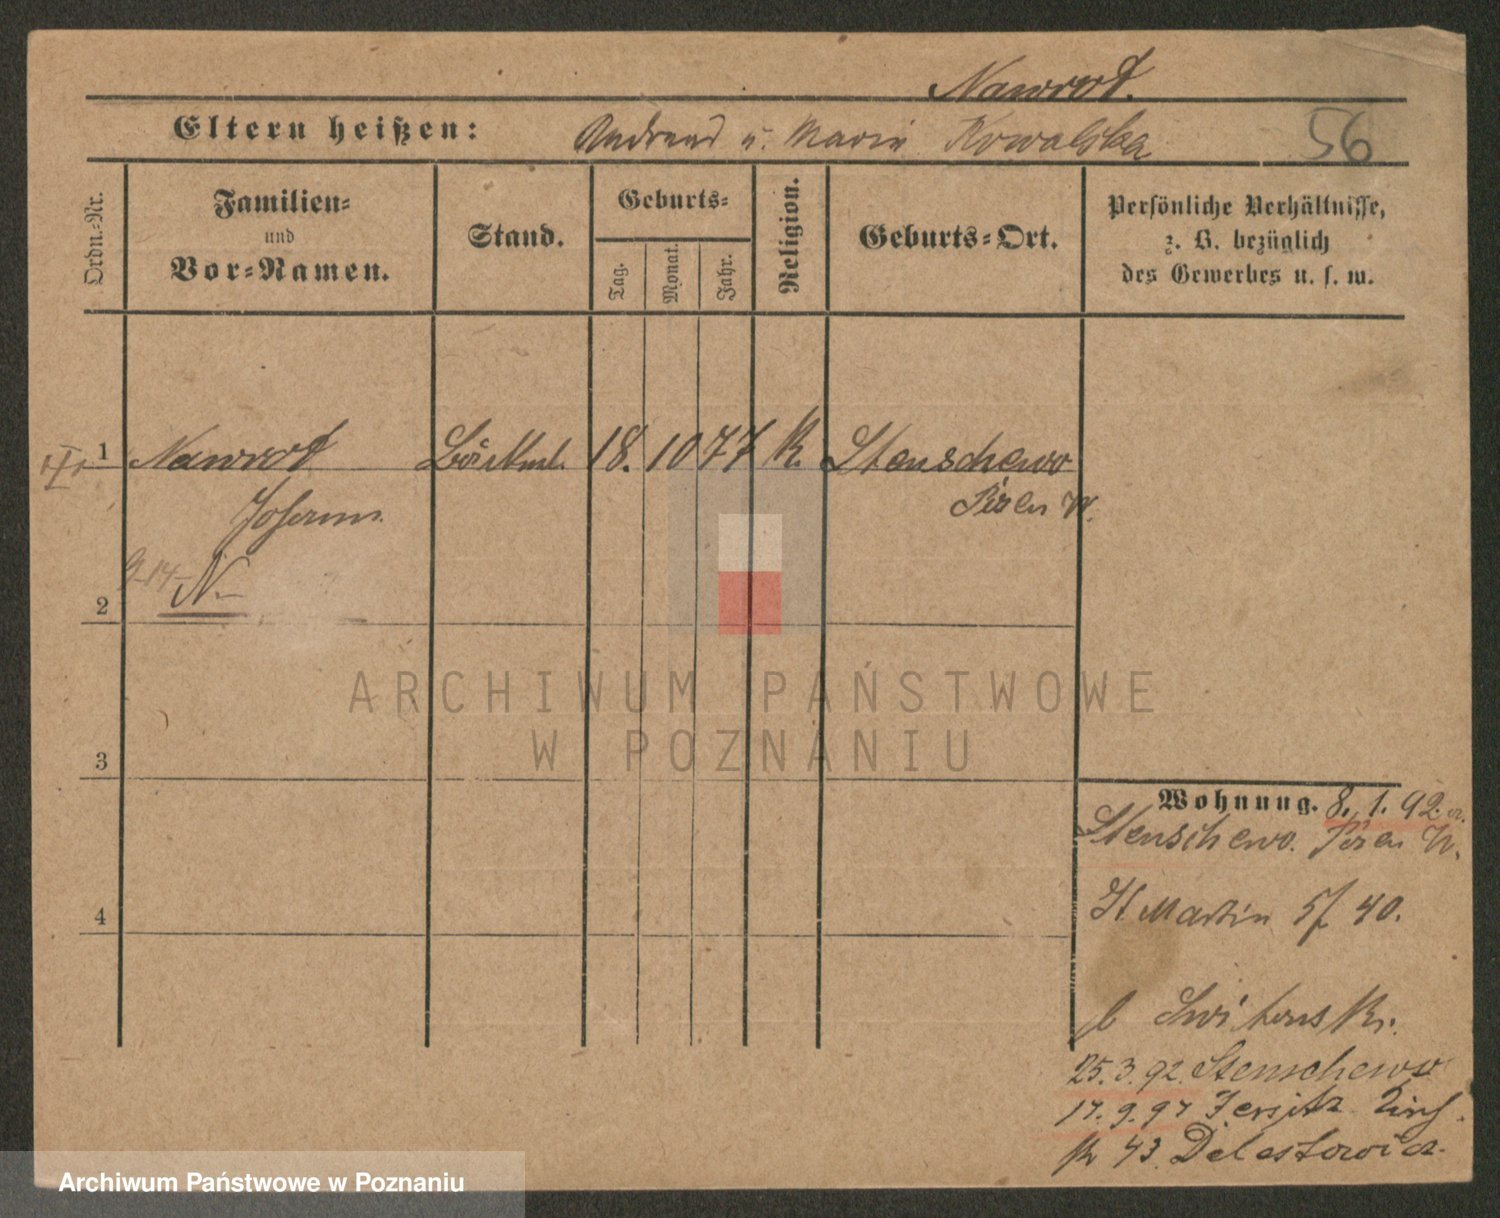 Nawrot.
Eltern heißen: Andreas u. Marie Kowalska
56
Ordn.-Nr.
Familien-
und
Vor-Namen.
Stand.
Geburts-
Tag.
Monat.
Jahr.
Religion.
Geburts-Ort.
Persönliche Verhältnisse,
z. B. bezüglich
des Gewerbes u. s. w.
1 Nawrot 18. 10 77 K. Stenschewo
Johann. Posen W.
9-14- N.-
2
ARCHIWUM PAŃSTWOWE
W POZNANIU
3
Wohnung. 8. 1. 92.
Stenschewo. Posen W.
St Martin 40.
b
25.3.92. Stenschewo
17.9.97 Jersitz Kirch
43.
4
Archiwum Państwowe w Poznaniu